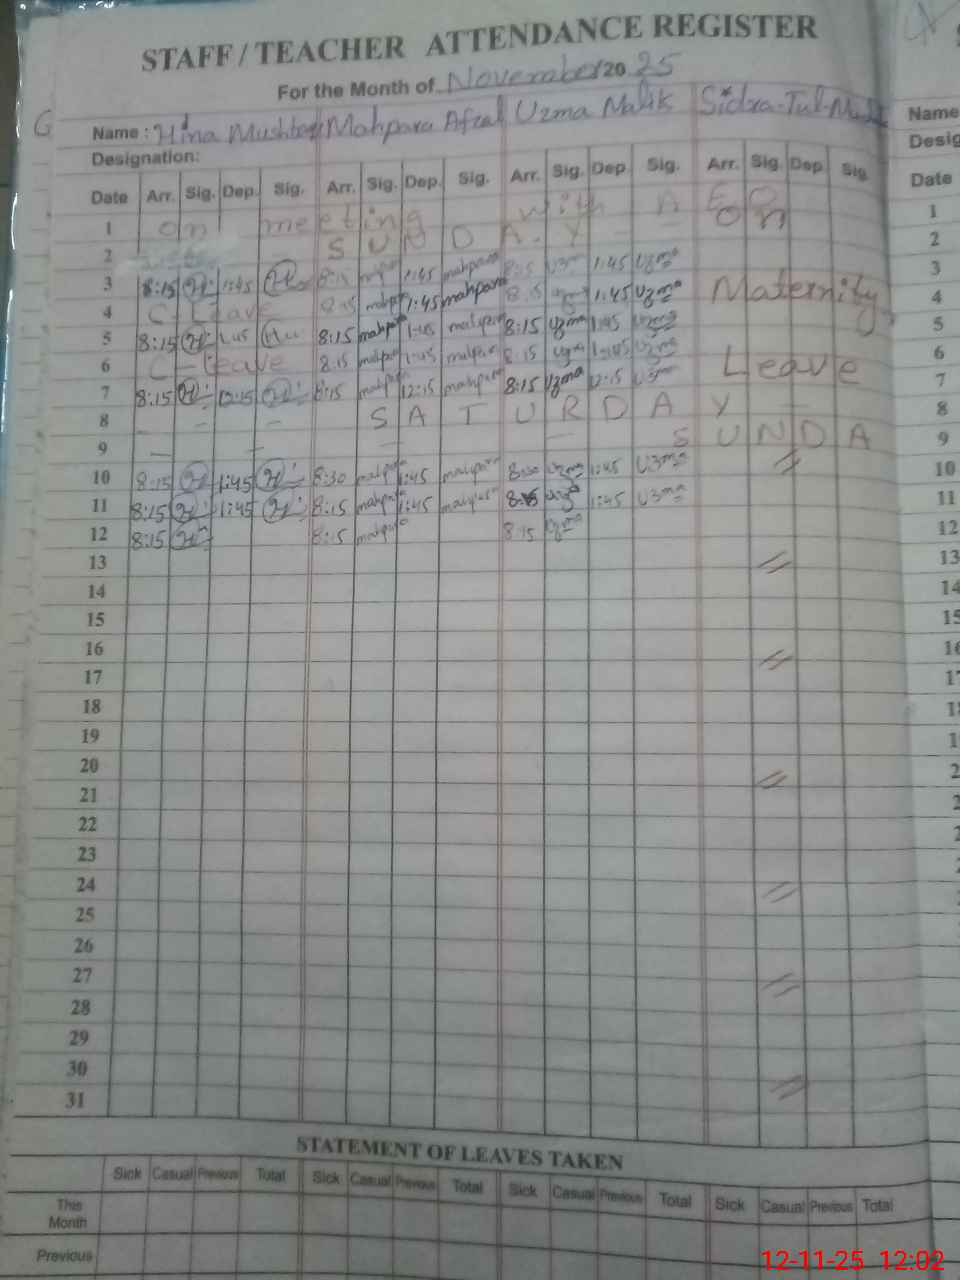 STAFF / TEACHER ATTENDANCE REGISTER
For the Month of November 20 25
Name : Hina Mushtaq Mahpara Afzal Uzma Malik Sidra-Tul-
Name
Designation:
Desig
Date Arr. Sig. Dep. Sig. Arr. Sig. Dep. Sig. Arr. Sig. Dep. Sig. Arr. Sig. Dep. Sig.
Date
1 on meeting with AEO on 1
2 SUNDAY 2
3 8:15 1:45 8:15 1:45 mahpara 8:15 1:45 Uzma 3
4 C-leave 8:15 mahpara 1:45 mahpara 8:15 1:45 Uzma Maternity 4
5 8:15 1:45 8:15 mahpara 1:45 mahpara 8:15 Uzma 1:45 Uzma 5
6 C-leave 8:15 mahpara 1:45 mahpara 8:15 Uzma 1:45 Uzma 6
7 8:15 12:15 8:15 mahpara 12:15 mahpara 8:15 Uzma 12:15 Uzma Leave 7
8 SATURDAY 8
9 SUNDA 9
10 8:15 1:45 8:30 mahpara 1:45 mahpara 8:30 Uzma 1:45 Uzma 10
11 8:15 1:45 8:15 mahpara 1:45 mahpara 8:15 Uzma 1:45 Uzma 11
12 8:15 8:15 mahpara 8:15 Uzma 12
13 13
14 14
15 15
16 16
17 17
18
19
20
21
22
23
24
25
26
27
28
29
30
31
STATEMENT OF LEAVES TAKEN
Sick Casual Previous Total Sick Casual Previous Total Sick Casual Previous Total Sick Casual Previous Total
This Month
Previous
12-11-25 12:02